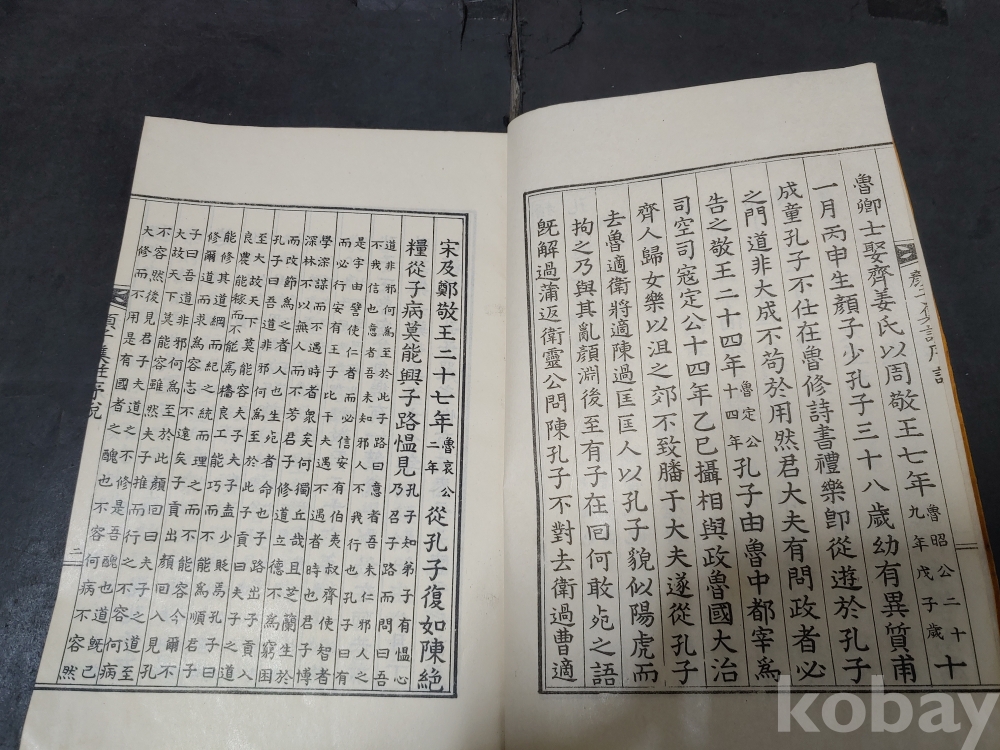 魯卿士娶齊姜氏以周敬王七年魯昭公二十九年戊子歲十
一月丙申生顔子少孔子三十八歲幼有異質甫
成童孔子不仕在魯修詩書禮樂卽從遊於孔子
之門道非大成不苟於用然君大夫有問政者必
告之敬王二十四年魯定公十四年孔子由魯中都宰爲
司空司寇定公十四年乙巳攝相與政魯國大治
齊人歸女樂以沮之郊不致膰于大夫遂從孔子
去魯適衛將適陳過匡匡人以孔子貌似陽虎而
拘之乃與其亂顔淵後至有子在回何敢死之語
旣解過蒲返衛靈公問陳孔子不對去衛過曹適
宋及鄭敬王二十七年魯哀公二年從孔子復如陳絶
糧從子病莫能興子路慍見孔子知弟子有慍心乃召子路而問曰吾
道非邪何爲至於此子路曰意者吾未仁邪人之
不我信也意者吾未知邪人不我行也孔子曰有
是乎由譬使仁者而必信安有伯夷叔齊使智者
而必行安有王子比干夫遇不遇者時也君子博
學深謀而不遇時者衆矣何獨丘哉且芝蘭生於
深林不以無人而不芳君子修道立德不爲窮困
而改節爲之者人也生死者命也子路出子貢入
孔子曰吾道非邪何爲至於此子貢曰夫子之道
至大故天下莫能容夫子夫子盍少貶焉孔子曰
良農能稼而不能爲穡良工能巧而不能爲順君子
能修其道綱而紀之統而理之而不能容今爾不
修爾道而求爲容志不遠矣子貢出顔回入見孔
子曰吾道非邪何爲至於此顔回曰夫子之道至
大故天下莫能容雖然夫子推而行之不容何病
不容然後見君子夫道之不修是吾醜也道旣已
大修而不用是有國者之醜也不容何病不容然
二
kobay